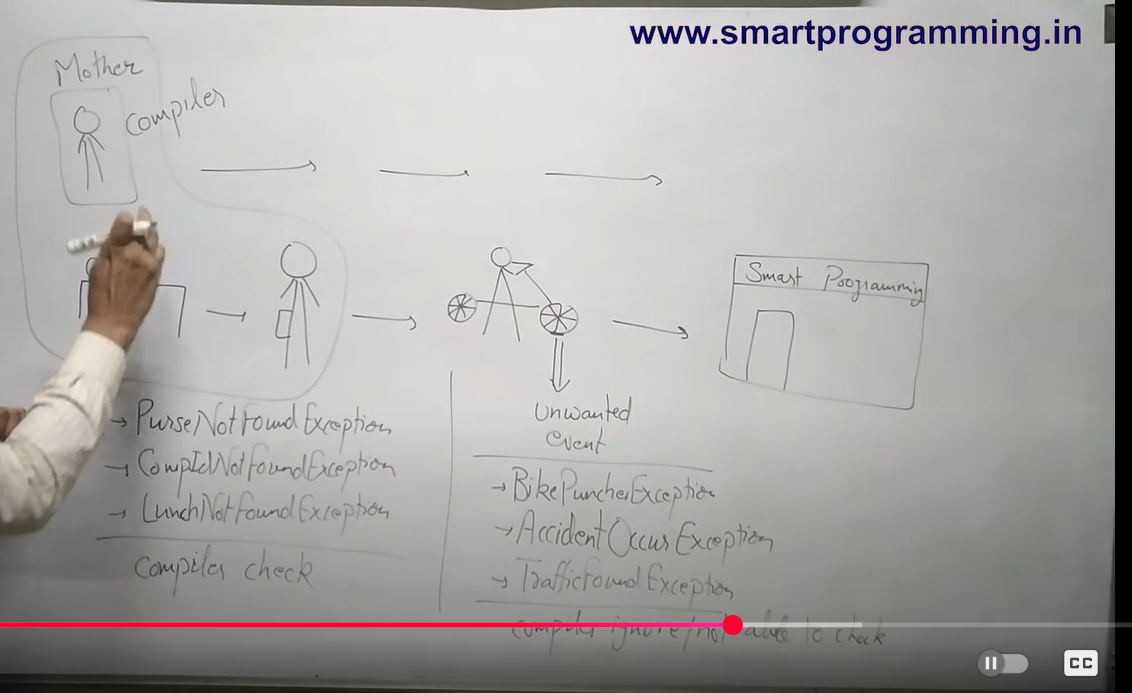 www.smartprogramming.in
Mother
Compiler
Smart Programming
Unwanted
event
→ PurseNotFoundException
→ CompIdNotFoundException
→ LunchNotFoundException
Compiler check
→ BikePuncherException
→ AccidentOccursException
→ TrafficFoundException
compiler ignore/not able to check
CC